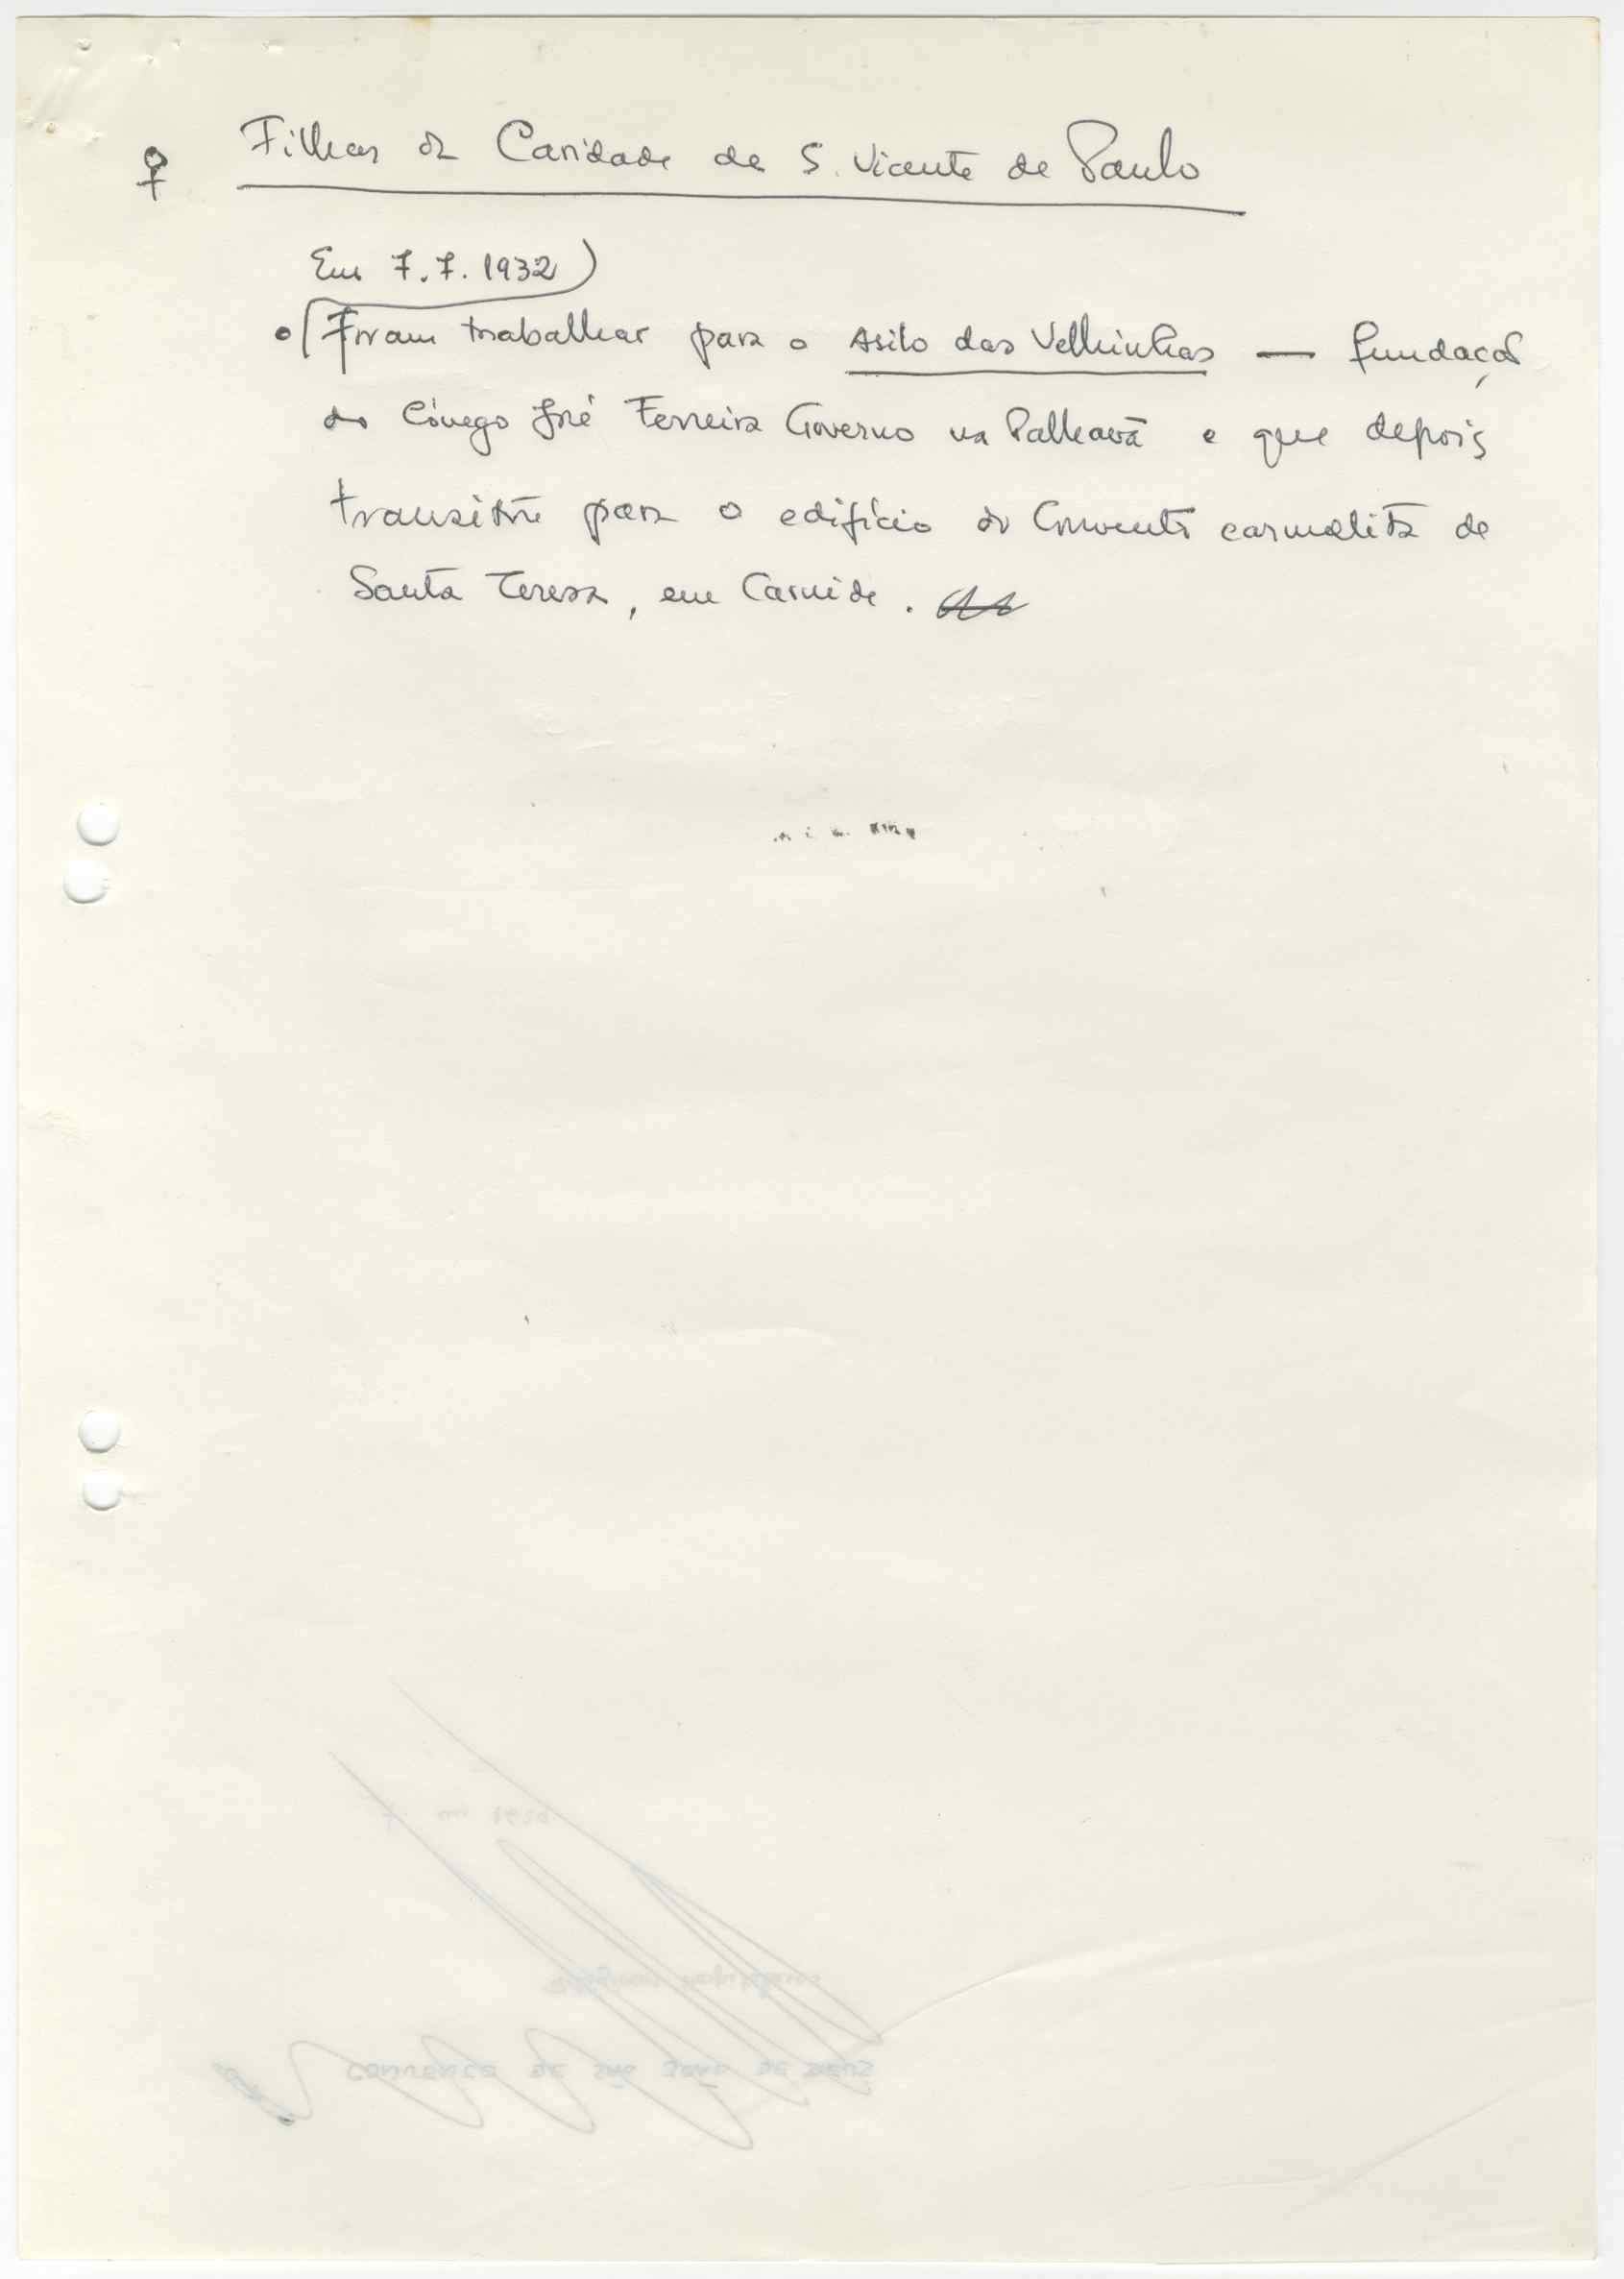 ♀ Filhas da Caridade de S. Vicente de Paulo
Em 7.7.1932)
Foram trabalhar para o Asilo das Velhinhas — fundação
do Cónego José Ferreira Governo na Palhavã e que depois
transitou para o edifício do Convento carmelita de
Santa Teresa, em Carnide.
CONVENTO DE SÃO JOÃO DE DEUS